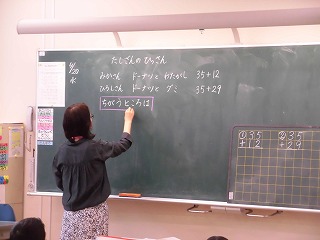 たしざんの ひっさん
6/20
水
みかさん ドーナツと わたがし 35+12
ひろしさん ドーナツと グミ 35+29
ちがうところは
① 35
+12
② 35
+29